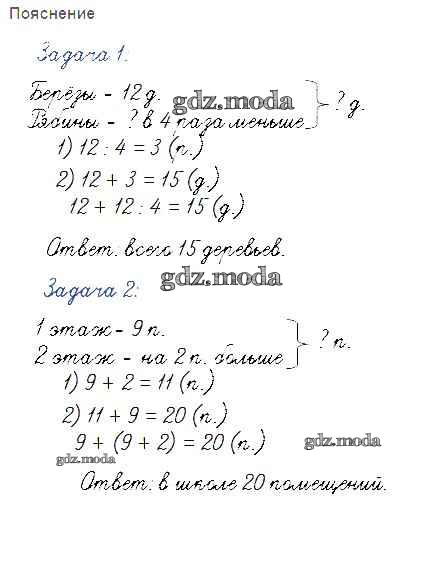 Пояснение
Задача 1:
Берёзы - 12 д.
gdz.moda
Рябины - ? в 4 раза меньше
? д.
1) 12 : 4 = 3 (п.)
2) 12 + 3 = 15 (д.)
12 + 12 : 4 = 15 (д.)
Ответ: всего 15 деревьев.
gdz.moda
Задача 2:
1 этаж - 9 п.
2 этаж - на 2 п. больше
? п.
1) 9 + 2 = 11 (п.)
2) 11 + 9 = 20 (п.)
9 + (9 + 2) = 20 (п.)
gdz.moda
gdz.moda
Ответ: в школе 20 помещений.